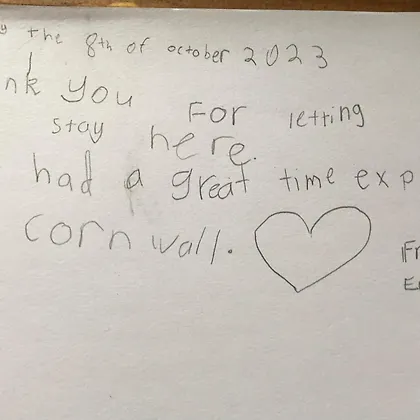 y the 8th of october 2023
nk you For letting
stay here.
had a great time exp
cornwall.
Fr